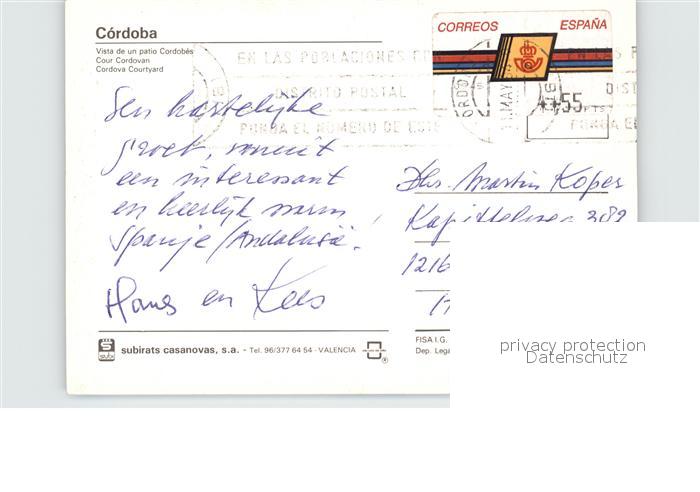 Córdoba
Vista de un patio Cordobés
Cour Cordovan
Cordova Courtyard
CORREOS ESPAÑA
EN LAS POBLACIONES CON
DISTRITO POSTAL
PONGA EL NUMERO DE ESTE
MAY
55
PTS
Een hartelijke
groet, vanuit
een interessant
en heerlijk warm
Spanje/Andalusië.
Hans en Kees
Dhr. Martin Koper
1216
subirats casanovas, s.a. - Tel. 96/377 64 54 - VALENCIA
FISA I.G.
Dep. Lega
privacy protection
Datenschutz